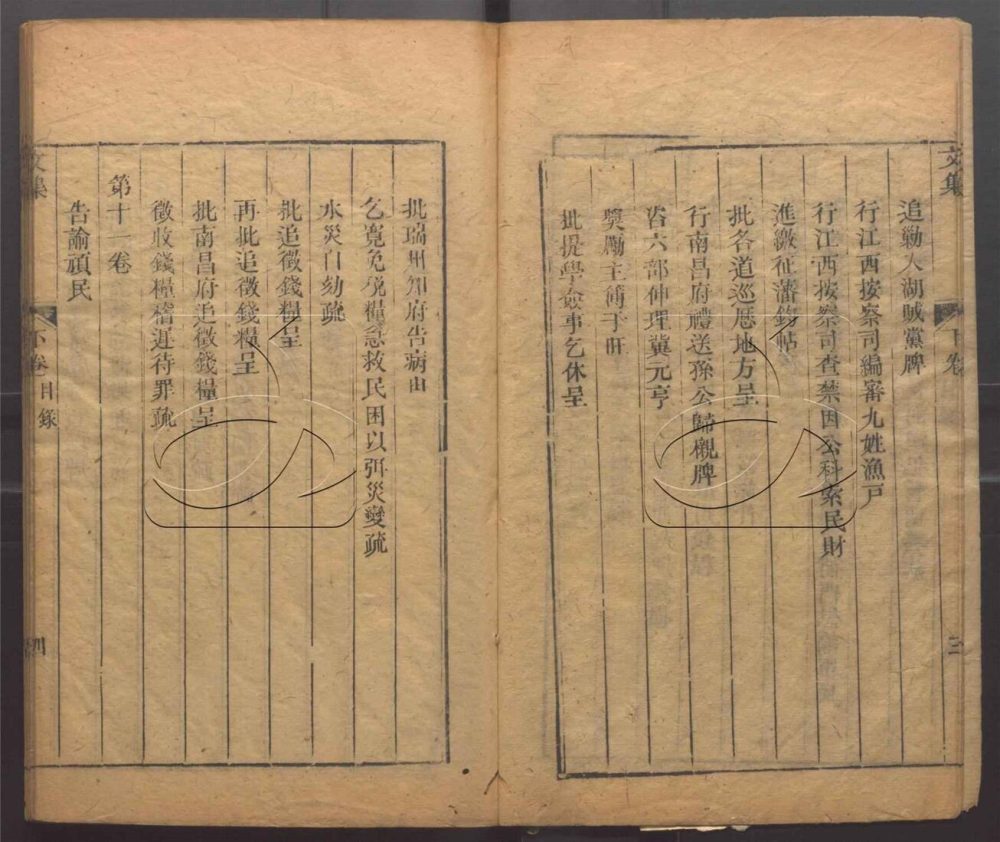 文集
下卷
三
追勦入湖賊黨牌
行江西按察司編審九姓漁戶
行江西按察司查禁因公科索民財
進繳征藩鈞帖
批各道巡歷地方呈
行南昌府禮送孫公歸櫬牌
咨六部伸理冀元亨
奬勵主簿于旺
批提學僉事乞休呈
批瑞州知府告病由
乞寬免稅糧急救民困以弭災變疏
水災自劾疏
批追徵錢糧呈
再批追徵錢糧呈
批南昌府追徵錢糧呈
徵收錢糧稽遲待罪疏
第十一卷
告諭頑民
文集
下卷目錄
四